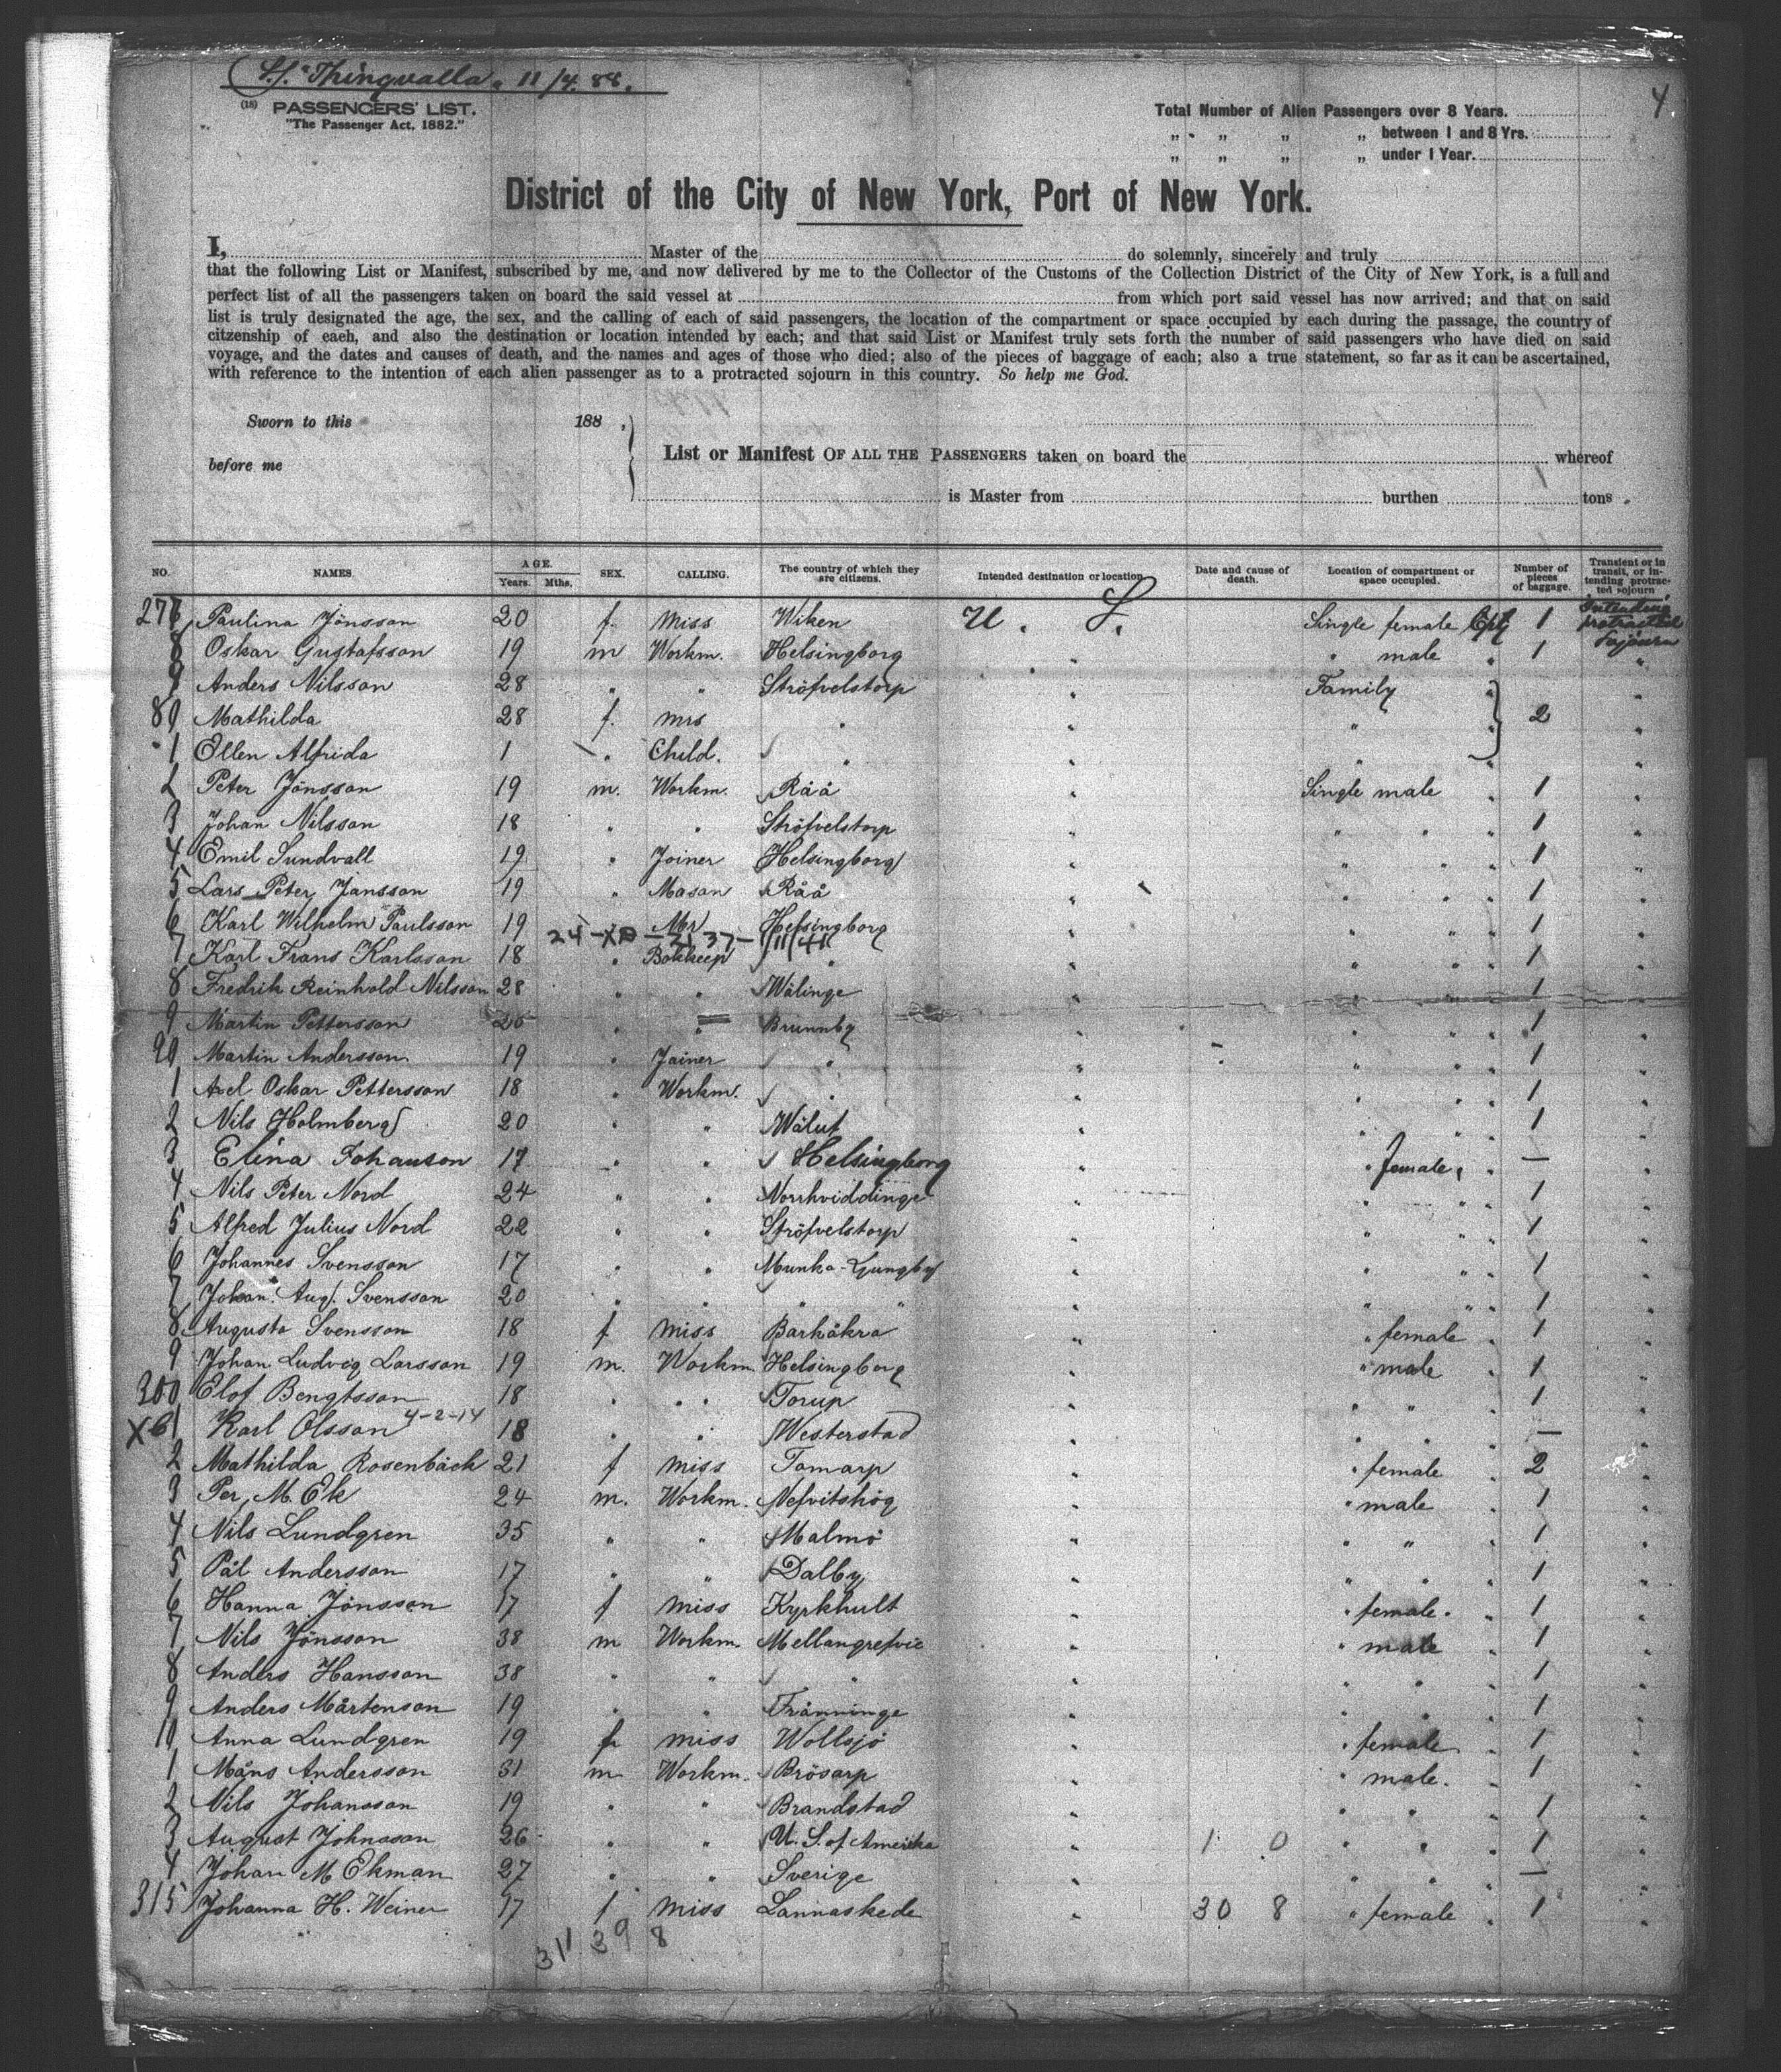 S.S. "Thingvalla" 11/4. 88.
4.
(18) PASSENGERS' LIST.
"The Passenger Act, 1882."
Total Number of Alien Passengers over 8 Years.
„ „ „ „ between 1 and 8 Yrs.
„ „ „ „ under 1 Year.
District of the City of New York, Port of New York.
I, Master of the do solemnly, sincerely and truly
that the following List or Manifest, subscribed by me, and now delivered by me to the Collector of the Customs of the Collection District of the City of New York, is a full and
perfect list of all the passengers taken on board the said vessel at from which port said vessel has now arrived; and that on said
list is truly designated the age, the sex, and the calling of each of said passengers, the location of the compartment or space occupied by each during the passage, the country of
citzenship of each, and also the destination or location intended by each; and that said List or Manifest truly sets forth the number of said passengers who have died on said
voyage, and the dates and causes of death, and the names and ages of those who died; also of the pieces of baggage of each; also a true statement, so far as it can be ascertained,
with reference to the intention of each alien passenger as to a protracted sojourn in this country. So help me God.
Sworn to this 188 .
before me
List or Manifest OF ALL THE PASSENGERS taken on board the whereof
is Master from burthen tons .
NO. NAMES. AGE. Years. Mths. SEX. CALLING. The country of which they are citizens. Intended destination or location. Date and cause of death. Location of compartment or space occupied. Number of pieces of baggage. Transient or in transit, or intending protracted sojourn
277 Paulina Jönsson 20 f. Miss Wiken U. S. Single female Cpt 1 Intending protracted Sojourn
8 Oskar Gustafsson 19 m Workm. Helsingborg " " male " 1 "
9 Anders Nilsson 28 " " Ströfvelstorp " Family " "
80 Mathilda 28 f. Mrs " " " " 2 "
1 Ellen Alfrida 1 " Child. " " " " "
2 Peter Jönsson 19 m. Workm. Råå " Single male " 1 "
3 Johan Nilsson 18 " " Ströfvelstorp " " " " 1 "
4 Emil Sundvall 19 " Joiner Helsingborg " " " " 1 "
5 Lars Peter Jansson 19 " Mason Råå " " " " 1 "
6 Karl Wilhelm Paulsson 19 " Mr Helsingborg " " " " 1 "
24-XD-2137-11/41
7 Karl Frans Karlsson 18 " Bokkeep " " " " " 1 "
8 Fredrik Reinhold Nilsson 28 " " Wälinge " " " " 1 "
9 Martin Pettersson " " Brunnby " " " " 1 "
90 Martin Andersson 19 " Joiner " " " " " 1 "
1 Axel Oskar Pettersson 18 " Workm. " " " " " 1 "
2 Nils Holmberg 20 " " Wälut " " " " 1 "
3 Elina Johanson 17 " " Helsingborg " " female " —
4 Nils Peter Nord 24 " " Norrhviddinge " " " " 1 "
5 Alfred Julius Nord 22 " " Ströfvelstorp " " " " 1 "
6 Johannes Svensson 17 " " Munka-Ljungby " " " " 1 "
7 Johan Aug. Svensson 20 " " " " " " " " 1 "
8 Augusta Svensson 18 f Miss Barkåkra " " female " 1 "
9 Johan Ludvig Larsson 19 m. Workm. Helsingborg " " male " 1 "
300 Elof Bengtsson 18 " " Torup " " " " 1 "
X61 Karl Olsson 4-2-14 18 " " Westerstad " " " " — "
2 Mathilda Rosenbäck 21 f Miss Tomarp " " female " 2 "
3 Per M. Ek 24 m. Workm. Nefvitshög " " male " 1 "
4 Nils Lundgren 35 " " Malmö " " " " 1 "
5 Pål Andersson 17 " " Dalby " " " " 1 "
6 Hanna Jönsson 17 f Miss Kyrkhult " " female " 1 "
7 Nils Jönsson 38 m Workm. Mellangrefvie " " male " 1 "
8 Anders Hansson 38 " " " " " " " 1 "
9 Anders Mårtenson 19 " " Fränninge " " " " 1 "
10 Anna Lundgren 19 f Miss Wollsjö " " female " 1 "
1 Måns Andersson 31 m Workm. Brösarp " " male. " 1 "
2 Nils Johansson 19 " " Brandstad " " " " 1 "
3 August Johnsson 26 " " U. S. of Amerika " 1 0 " " " 1 "
4 Johan M Ekman 27 " " Sverige " " " " — "
315 Johanna H. Weiner 17 f Miss Lannaskede " 30 8 " female " 1 "
311 39 8